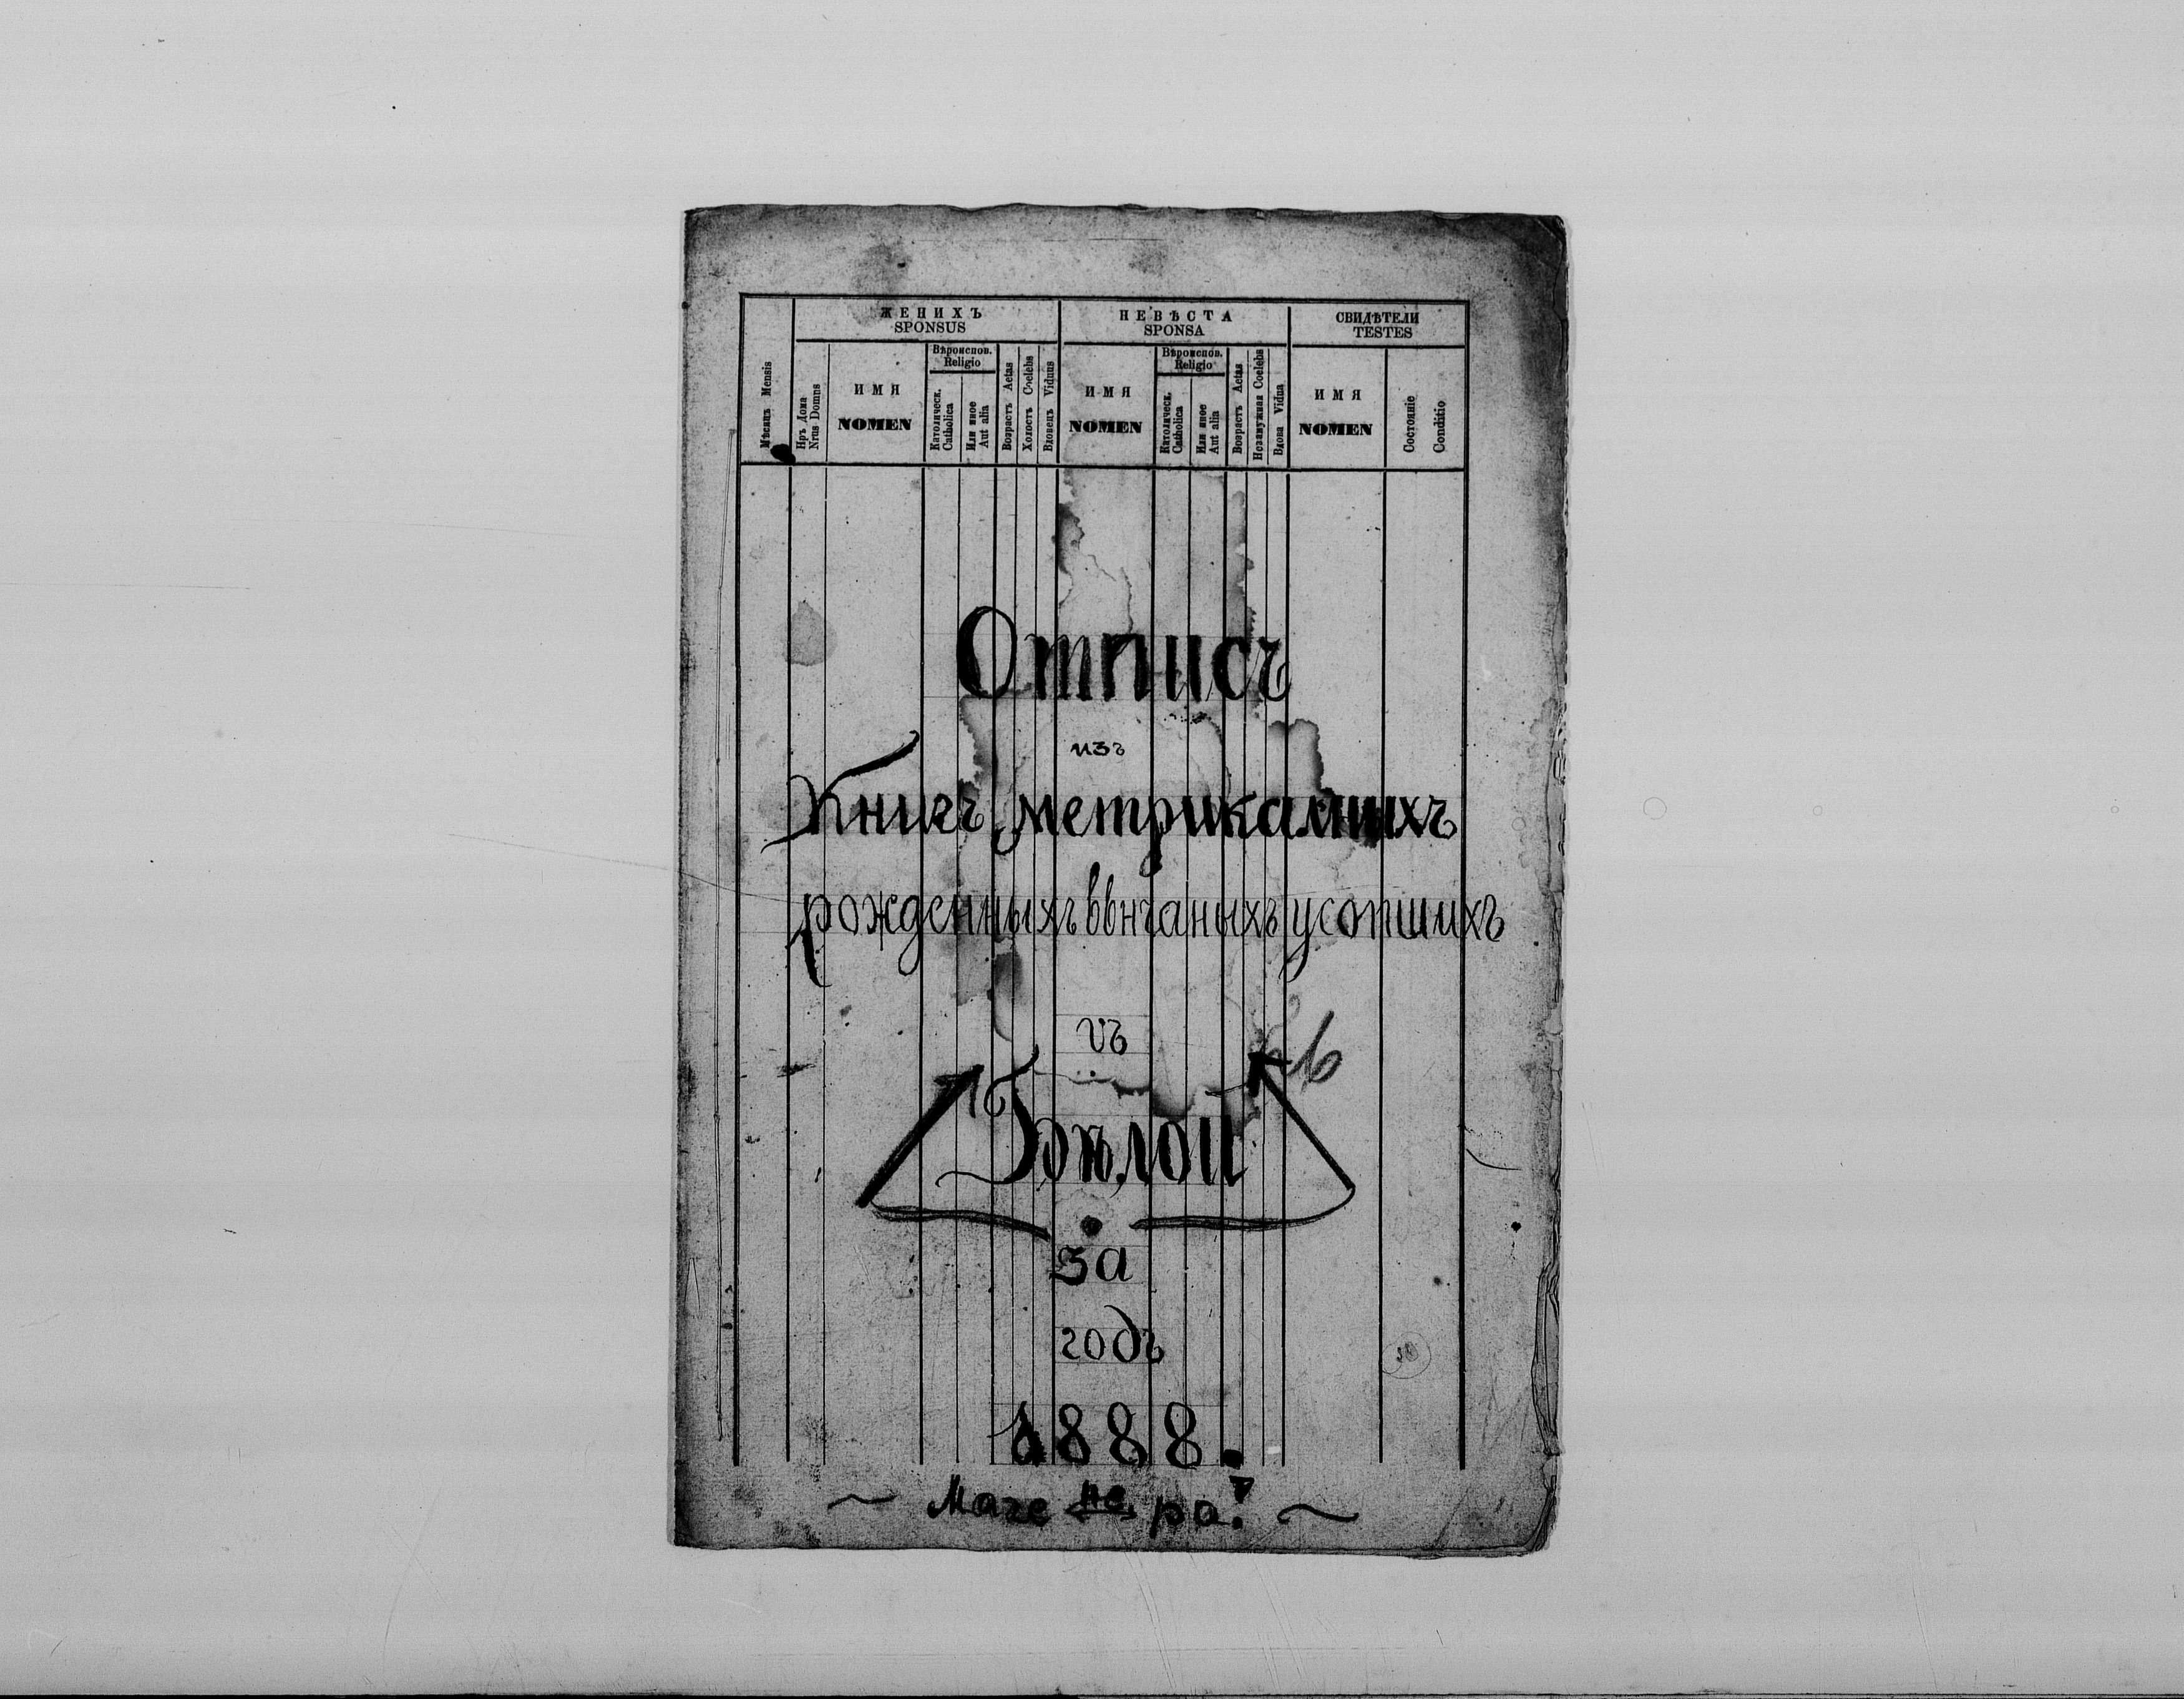 ЖЕНИХЪ НЕВѢСТА СВИДѢТЕЛИ
SPONSUS SPONSA TESTES
Мѣсяцъ Mensis
Нръ Дома Nrus Domus
ИМЯ NOMEN
Вѣроиспов. Religio
Католическ. Catholica
Или иное Aut alia
Возрастъ Aetas
Холостъ Coelebs
Вдовецъ Viduus
ИМЯ NOMEN
Вѣроиспов. Religio
Католическ. Catholica
Или иное Aut alia
Возрастъ Aetas
Незамужная Coelebs
Вдова Vidua
ИМЯ NOMEN
Состояніе Conditio
Отписъ
изъ
Книгъ метрикалныхъ
рожденныхъ ввнчаныхъ усопшихъ
въ
Бѣлой
за
годъ
1888.